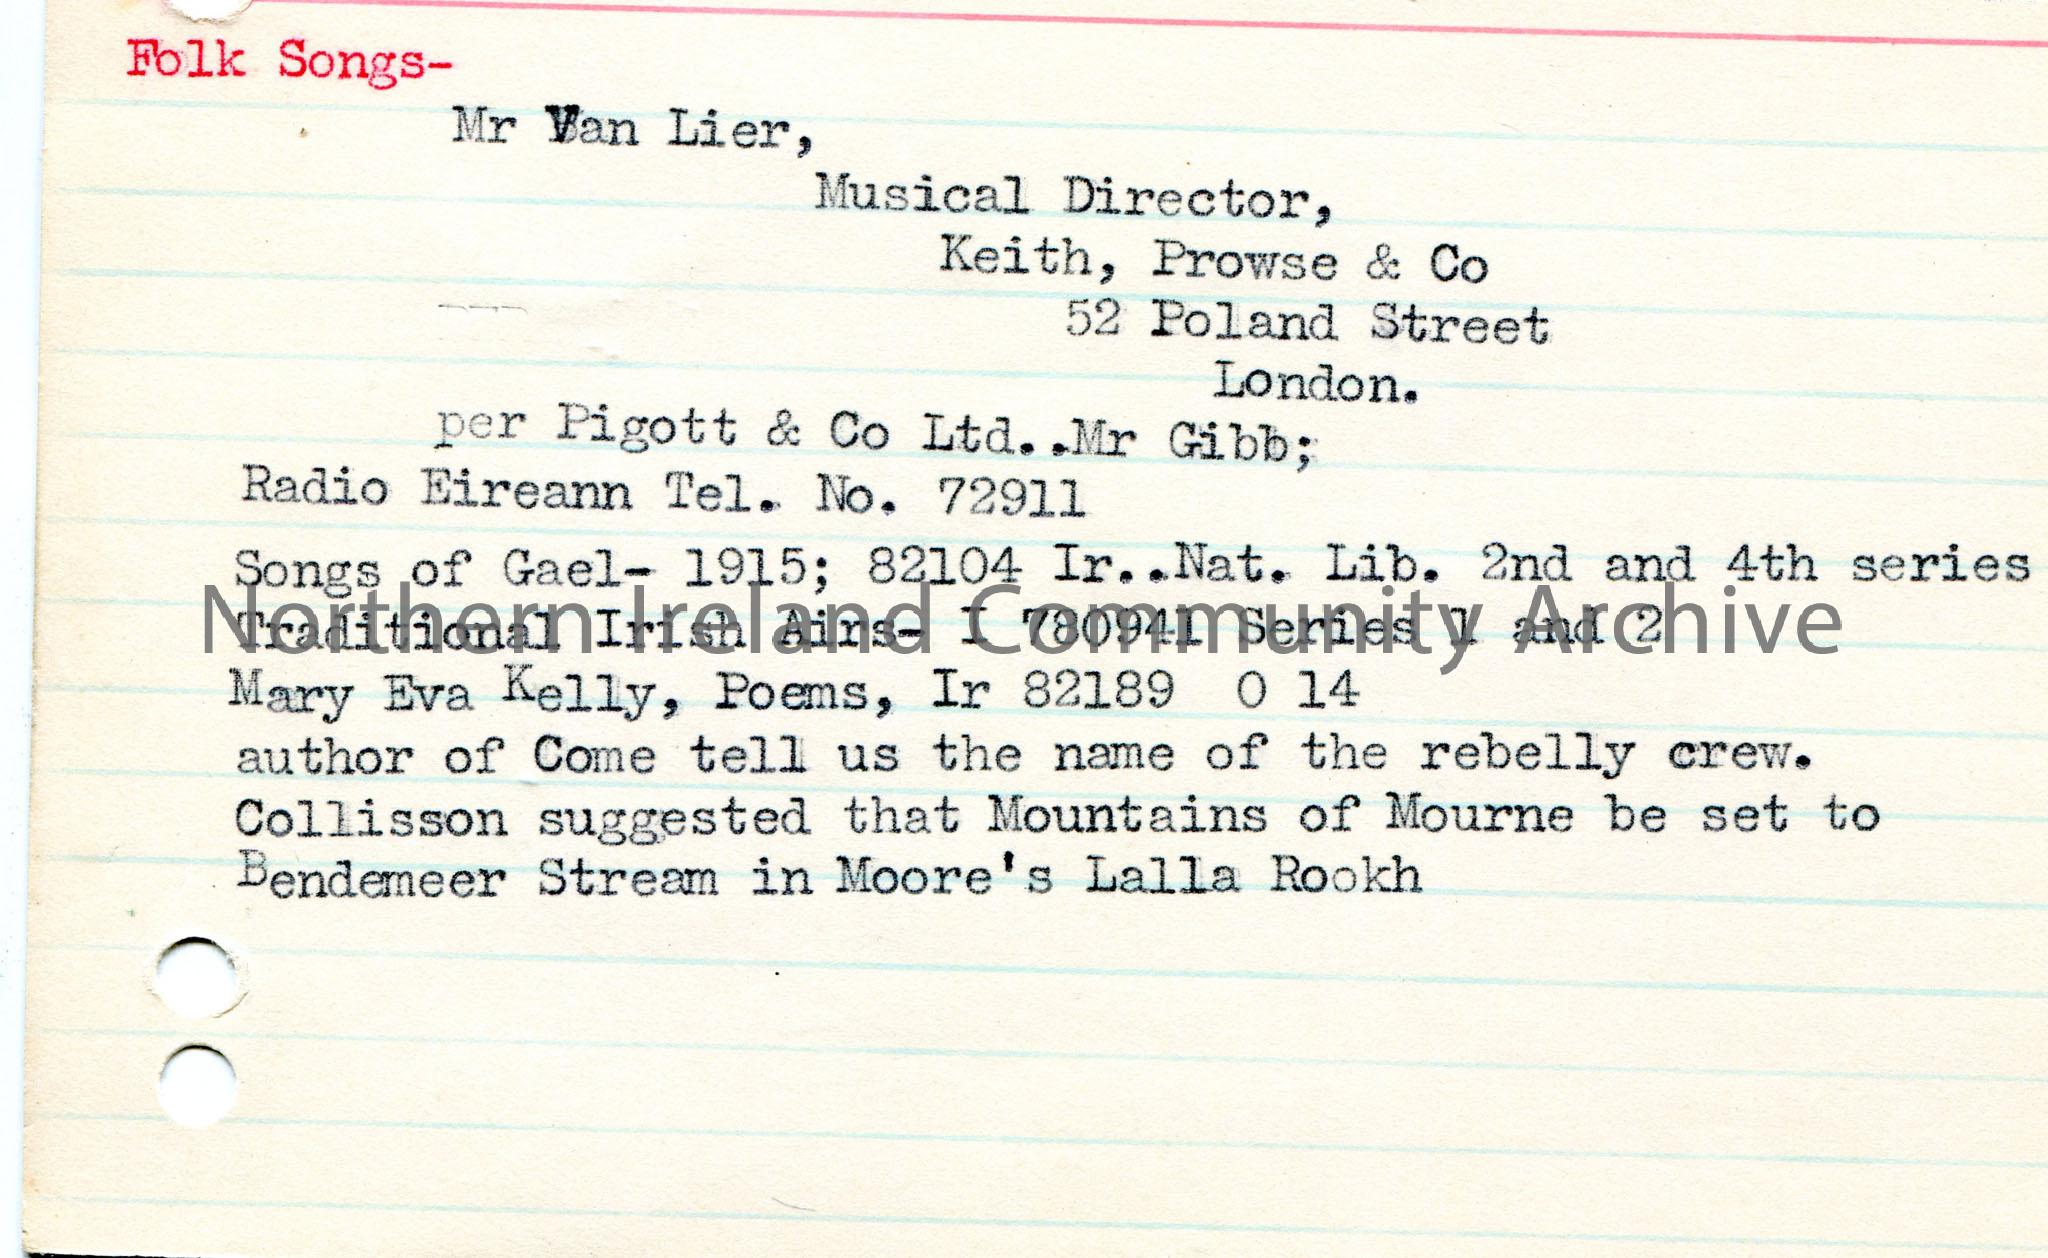 Folk Songs-
Mr Van Lier,
Musical Director,
Keith, Prowse & Co
52 Poland Street
London.
per Pigott & Co Ltd..Mr Gibb;
Radio Eireann Tel. No. 72911
Songs of Gael- 1915; 82104 Ir..Nat. Lib. 2nd and 4th series
Northern Ireland Community Archive
Traditional Irish Airs- I 780941 Series 1 and 2
Mary Eva Kelly, Poems, Ir 82189 O 14
author of Come tell us the name of the rebelly crew.
Collisson suggested that Mountains of Mourne be set to
Bendemeer Stream in Moore's Lalla Rookh